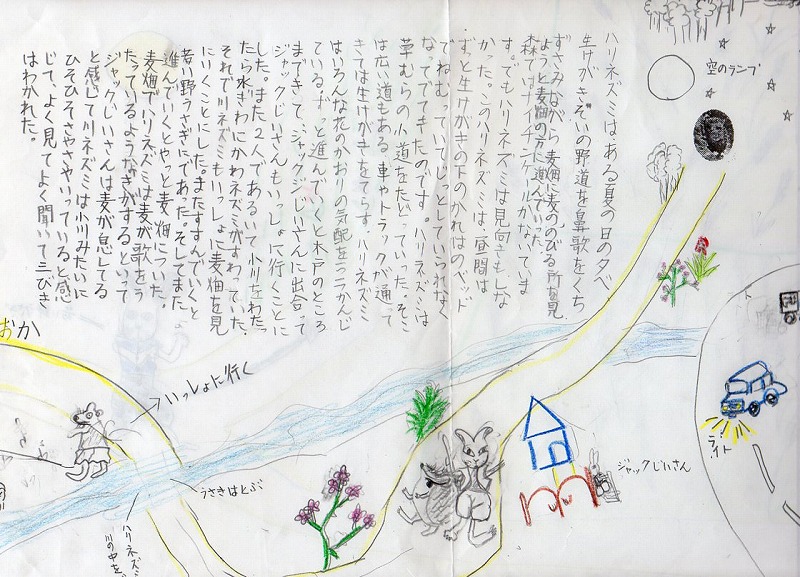 ハリネズミは、ある夏の日の夕べ、
生けがきぞいの野道を鼻歌をくち
ずさみながら麦畑に麦ののびる所を見
ようと麦畑の方に進んでいった。
森ではナイチンゲールがないていま
す。でもハリネズミは見向きもしな
かった。このハリネズミは、昼間は
ずっと生けがきの下のかれはのベッド
でねむっていてじっとしていられなく
なってでてきたのです。ハリネズミは
草むらの小道をたどっていった。そこ
は広い道もある。車やトラックが通って
きては生けがきをてらす。ハリネズミ
はいろんな花のかおりの気配をかんじ
ている。ずっと進んでいくと木戸のところ
まできて、ジャックじいさんに出合って
ジャックじいさんもいっしょに行くことに
した。また2人であるいて小川をわたっ
たら水ぎわにかわネズミがすわっていた。
それで川ネズミもいっしょに麦畑を見
にいくことにした。またすすんでいくと
若い野うさぎにであった。そしてまた
進んでいくとやっと麦畑についた。
麦畑でハリネズミは麦が歌をう
たっているようなきがするといって
ジャックじいさんは麦が息をしてる
と感じて川ネズミは小川みたいに
ひそひそささやいっていると感
じて、よく見てよく聞いて三びき
はわかれた。
空のランプ
ライト
ジャックじいさん
いっしょに行く
おか
うさきはとぶ
ハリネズミ
川の中を